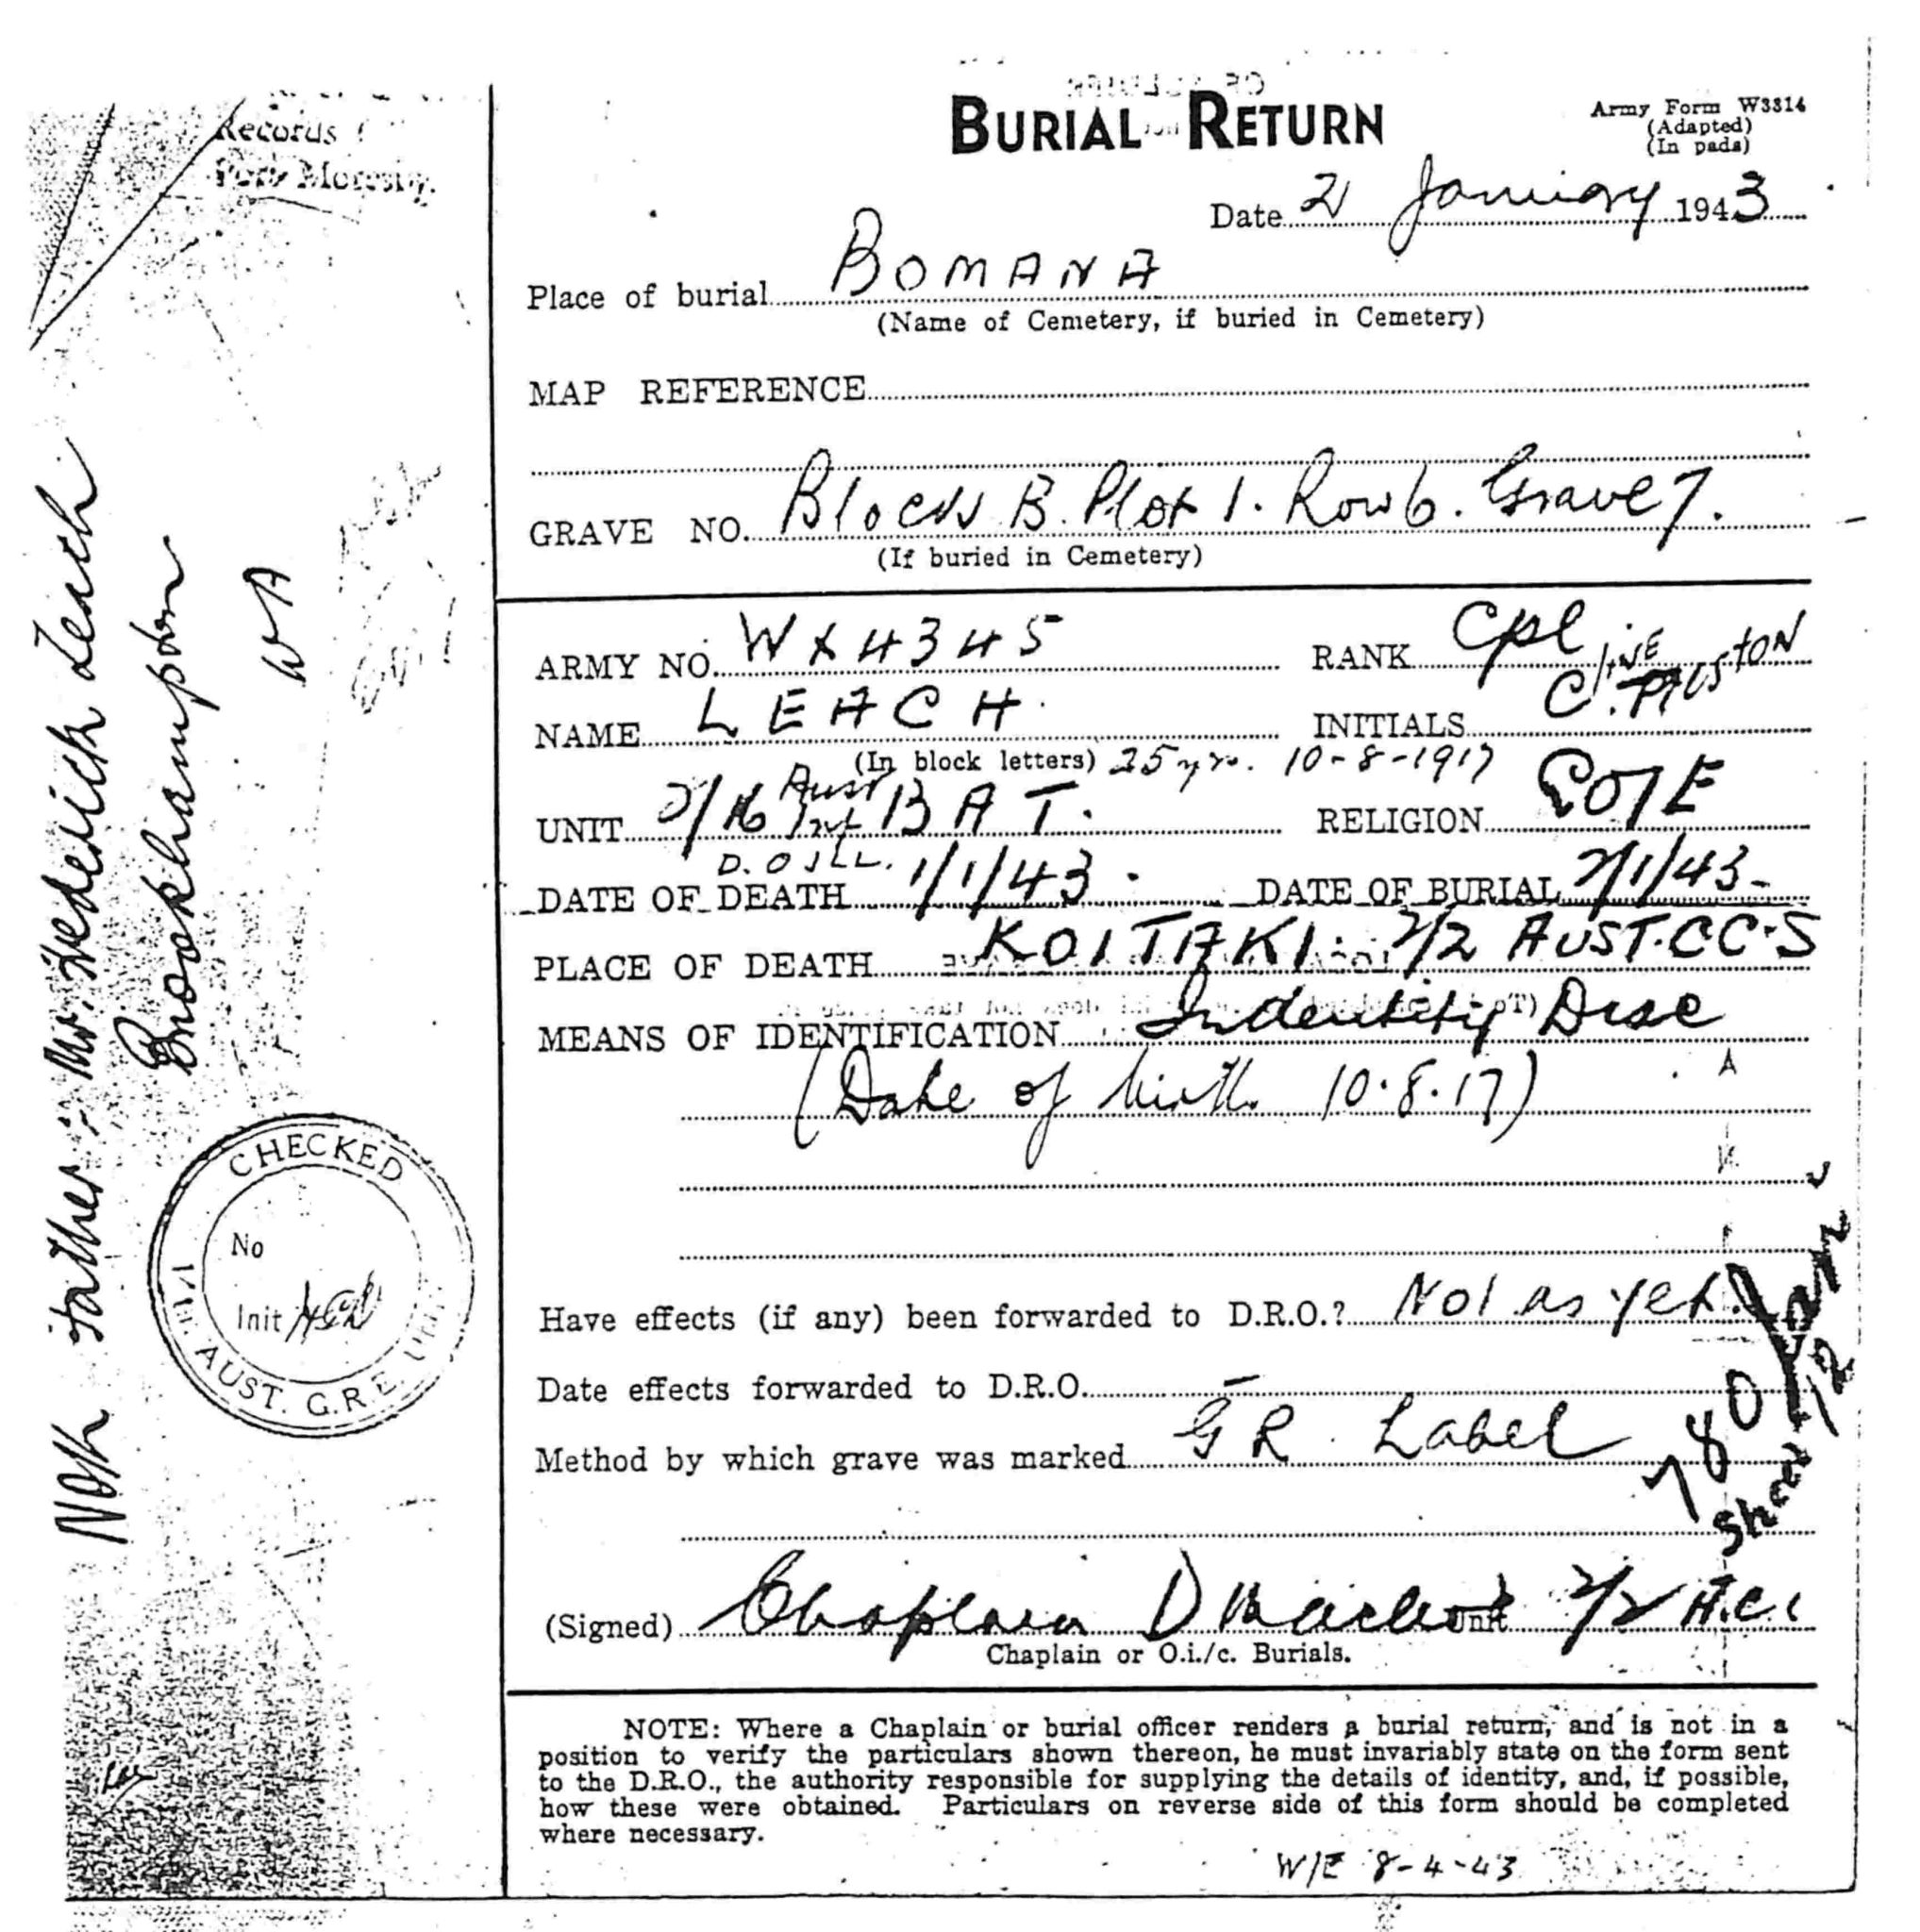 Records
Port Moresby.
BURIAL RETURN
Army Form W3314
(Adapted)
(In pads)
Date 2 January 1943
Place of burial BOMANA
(Name of Cemetery, if buried in Cemetery)
MAP REFERENCE
GRAVE NO. Block B. Plot 1. Row 6. Grave 7.
(If buried in Cemetery)
ARMY NO. WX4345 RANK Cpl
NAME LEACH. INITIALS C. Clive Auston
(In block letters) 25 yrs. 10-8-1917
UNIT 2/16 Aust Inf BAT. RELIGION C of E
D.O ILL.
DATE OF DEATH 1/1/43. DATE OF BURIAL 2/1/43-
PLACE OF DEATH KOITAKI. 2/2 AUST. C C.S
MEANS OF IDENTIFICATION Indentity Disc
(Date of birth 10.8.17)
Have effects (if any) been forwarded to D.R.O.? Not as yet.
Date effects forwarded to D.R.O. –
Method by which grave was marked GR. Label
(Signed) Chaplain D Unit 2/2
Chaplain or O.i./c. Burials.
NOTE: Where a Chaplain or burial officer renders a burial return, and is not in a
position to verify the particulars shown thereon, he must invariably state on the form sent
to the D.R.O., the authority responsible for supplying the details of identity, and, if possible,
how these were obtained. Particulars on reverse side of this form should be completed
where necessary.
W/E 8-4-43
NOK Father:- Mr. Frederick Leach
Brookhampton
WA
CHECKED
No
Init
AUST. G.R.E. UNIT
780
Sheet 12